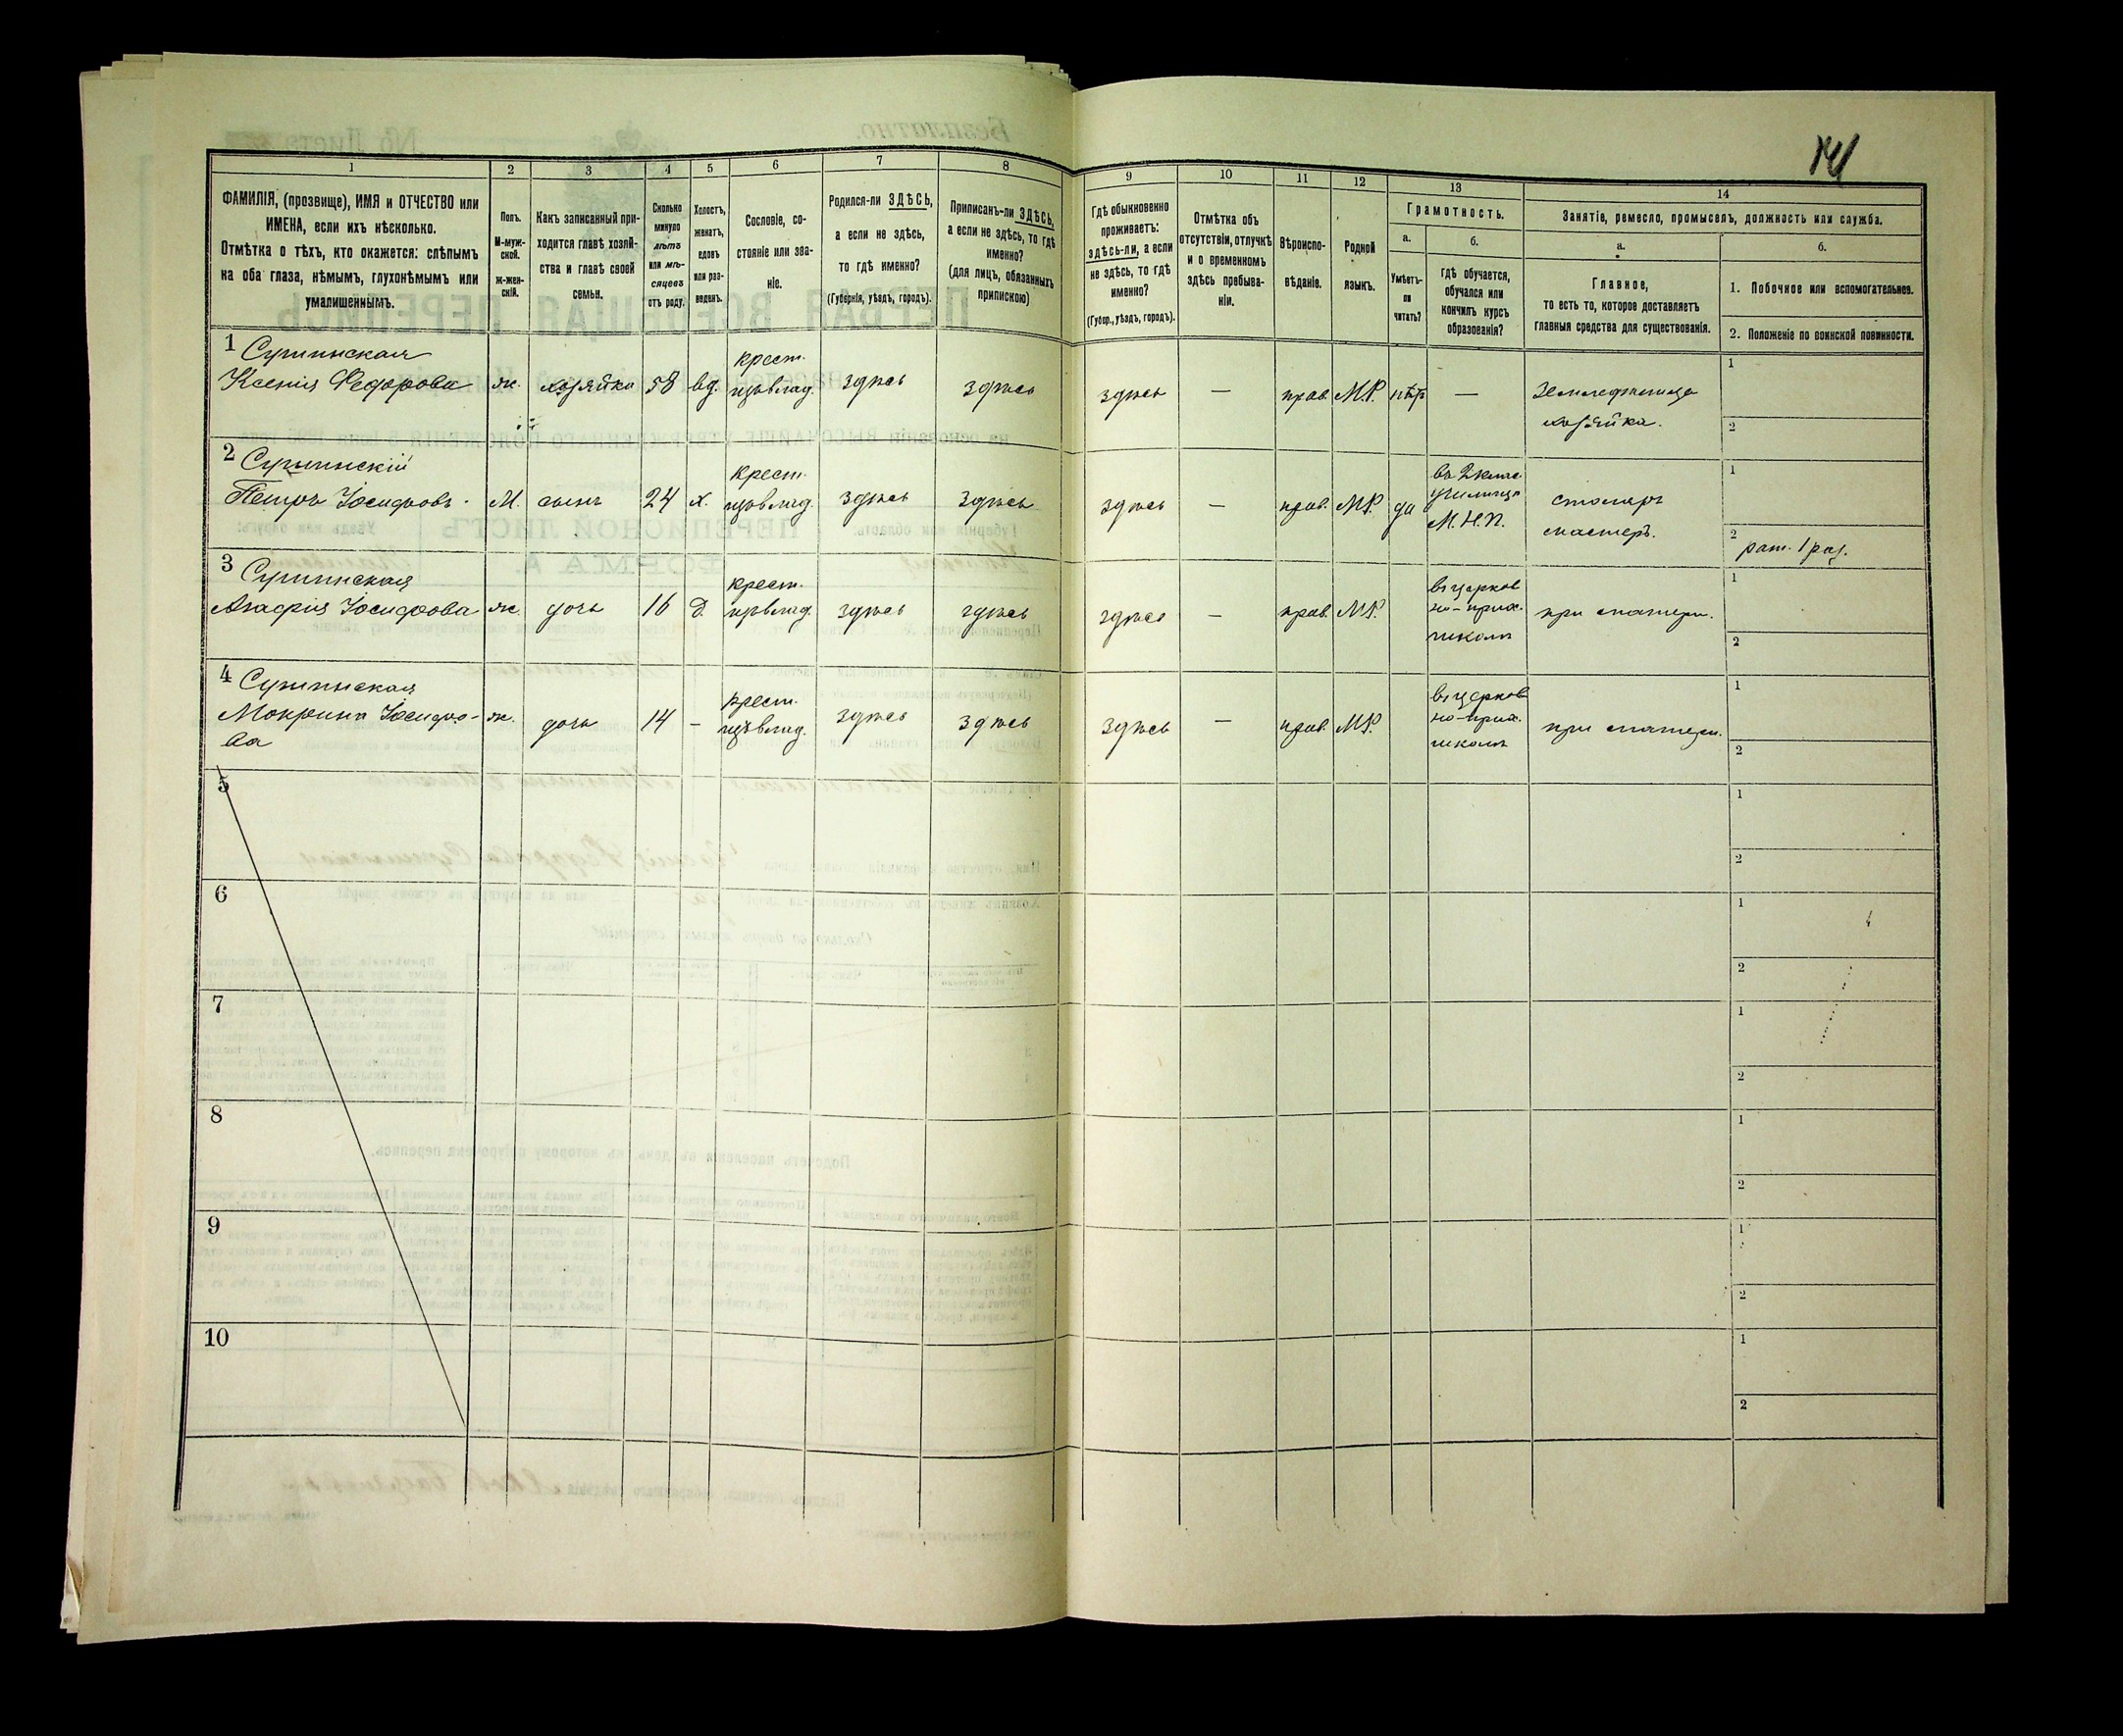 141
1 2 3 4 5 6 7 8 9 10 11 12 13 14
ФАМИЛІЯ, (прозвище), ИМЯ и ОТЧЕСТВО или
ИМЕНА, если ихъ нѣсколько.
Отмѣтка о тѣхъ, кто окажется: слѣпымъ
на оба глаза, нѣмымъ, глухонѣмымъ или
умалишеннымъ.
Полъ.
М-муж-
ской.
ж-жен-
скій.
Какъ записанный при-
ходится главѣ хозяй-
ства и главѣ своей
семьи.
Сколько
минуло
лѣтъ
или мѣ-
сяцевъ
отъ роду.
Холостъ,
женатъ,
вдовъ
или раз-
веденъ.
Сословіе, со-
стояніе или зва-
ніе.
Родился-ли ЗДѢСЬ,
а если не здѣсь,
то гдѣ именно?
(Губернія, уѣздъ, городъ).
Приписанъ-ли ЗДѢСЬ,
а если не здѣсь, то гдѣ
именно?
(для лицъ, обязанныхъ
припискою)
Гдѣ обыкновенно
проживаетъ:
здѣсь-ли, а если
не здѣсь, то гдѣ
именно?
(Губер., уѣздъ, городъ).
Отмѣтка объ
отсутствіи, отлучкѣ
и о временномъ
здѣсь пребыва-
ніи.
Вѣроиспо-
вѣданіе.
Родной
языкъ.
Грамотность.
а.
Умѣетъ-
ли
читать?
б.
гдѣ обучается,
обучался или
кончилъ курсъ
образованія?
Занятіе, ремесло, промыселъ, должность или служба.
а.
Главное,
то есть то, которое доставляетъ
главныя средства для существованія.
б.
1. Побочное или вспомогательное.
2. Положеніе по воинской повинности.
1
Ксенія Федорова ж. хозяйка 58 вд. крест. здѣсь здѣсь здѣсь — прав. М.Р. нѣт — Земледѣлица
хозяйка.
1
2
2
Петръ Іосифовъ М. сынъ 24 х. крест. здѣсь здѣсь здѣсь — прав. М.Р. да въ 2 клас.
училищѣ
М.Н.П.
столяръ
мастеръ.
1
2 рат. 1 раз.
3
Агафія Іосифова ж. дочь 16 д. крест. здѣсь здѣсь здѣсь — прав. М.Р. въ церков
но-прих.
школѣ
при матери.
1
2
4
Мокрина Іосифо-
ва
ж. дочь 14 — крест. здѣсь здѣсь здѣсь — прав. М.Р. въ церков
но-прих.
школѣ
при матери.
1
2
5
1
2
6
1
2
7
1
2
8
1
2
9
1
2
10
1
2